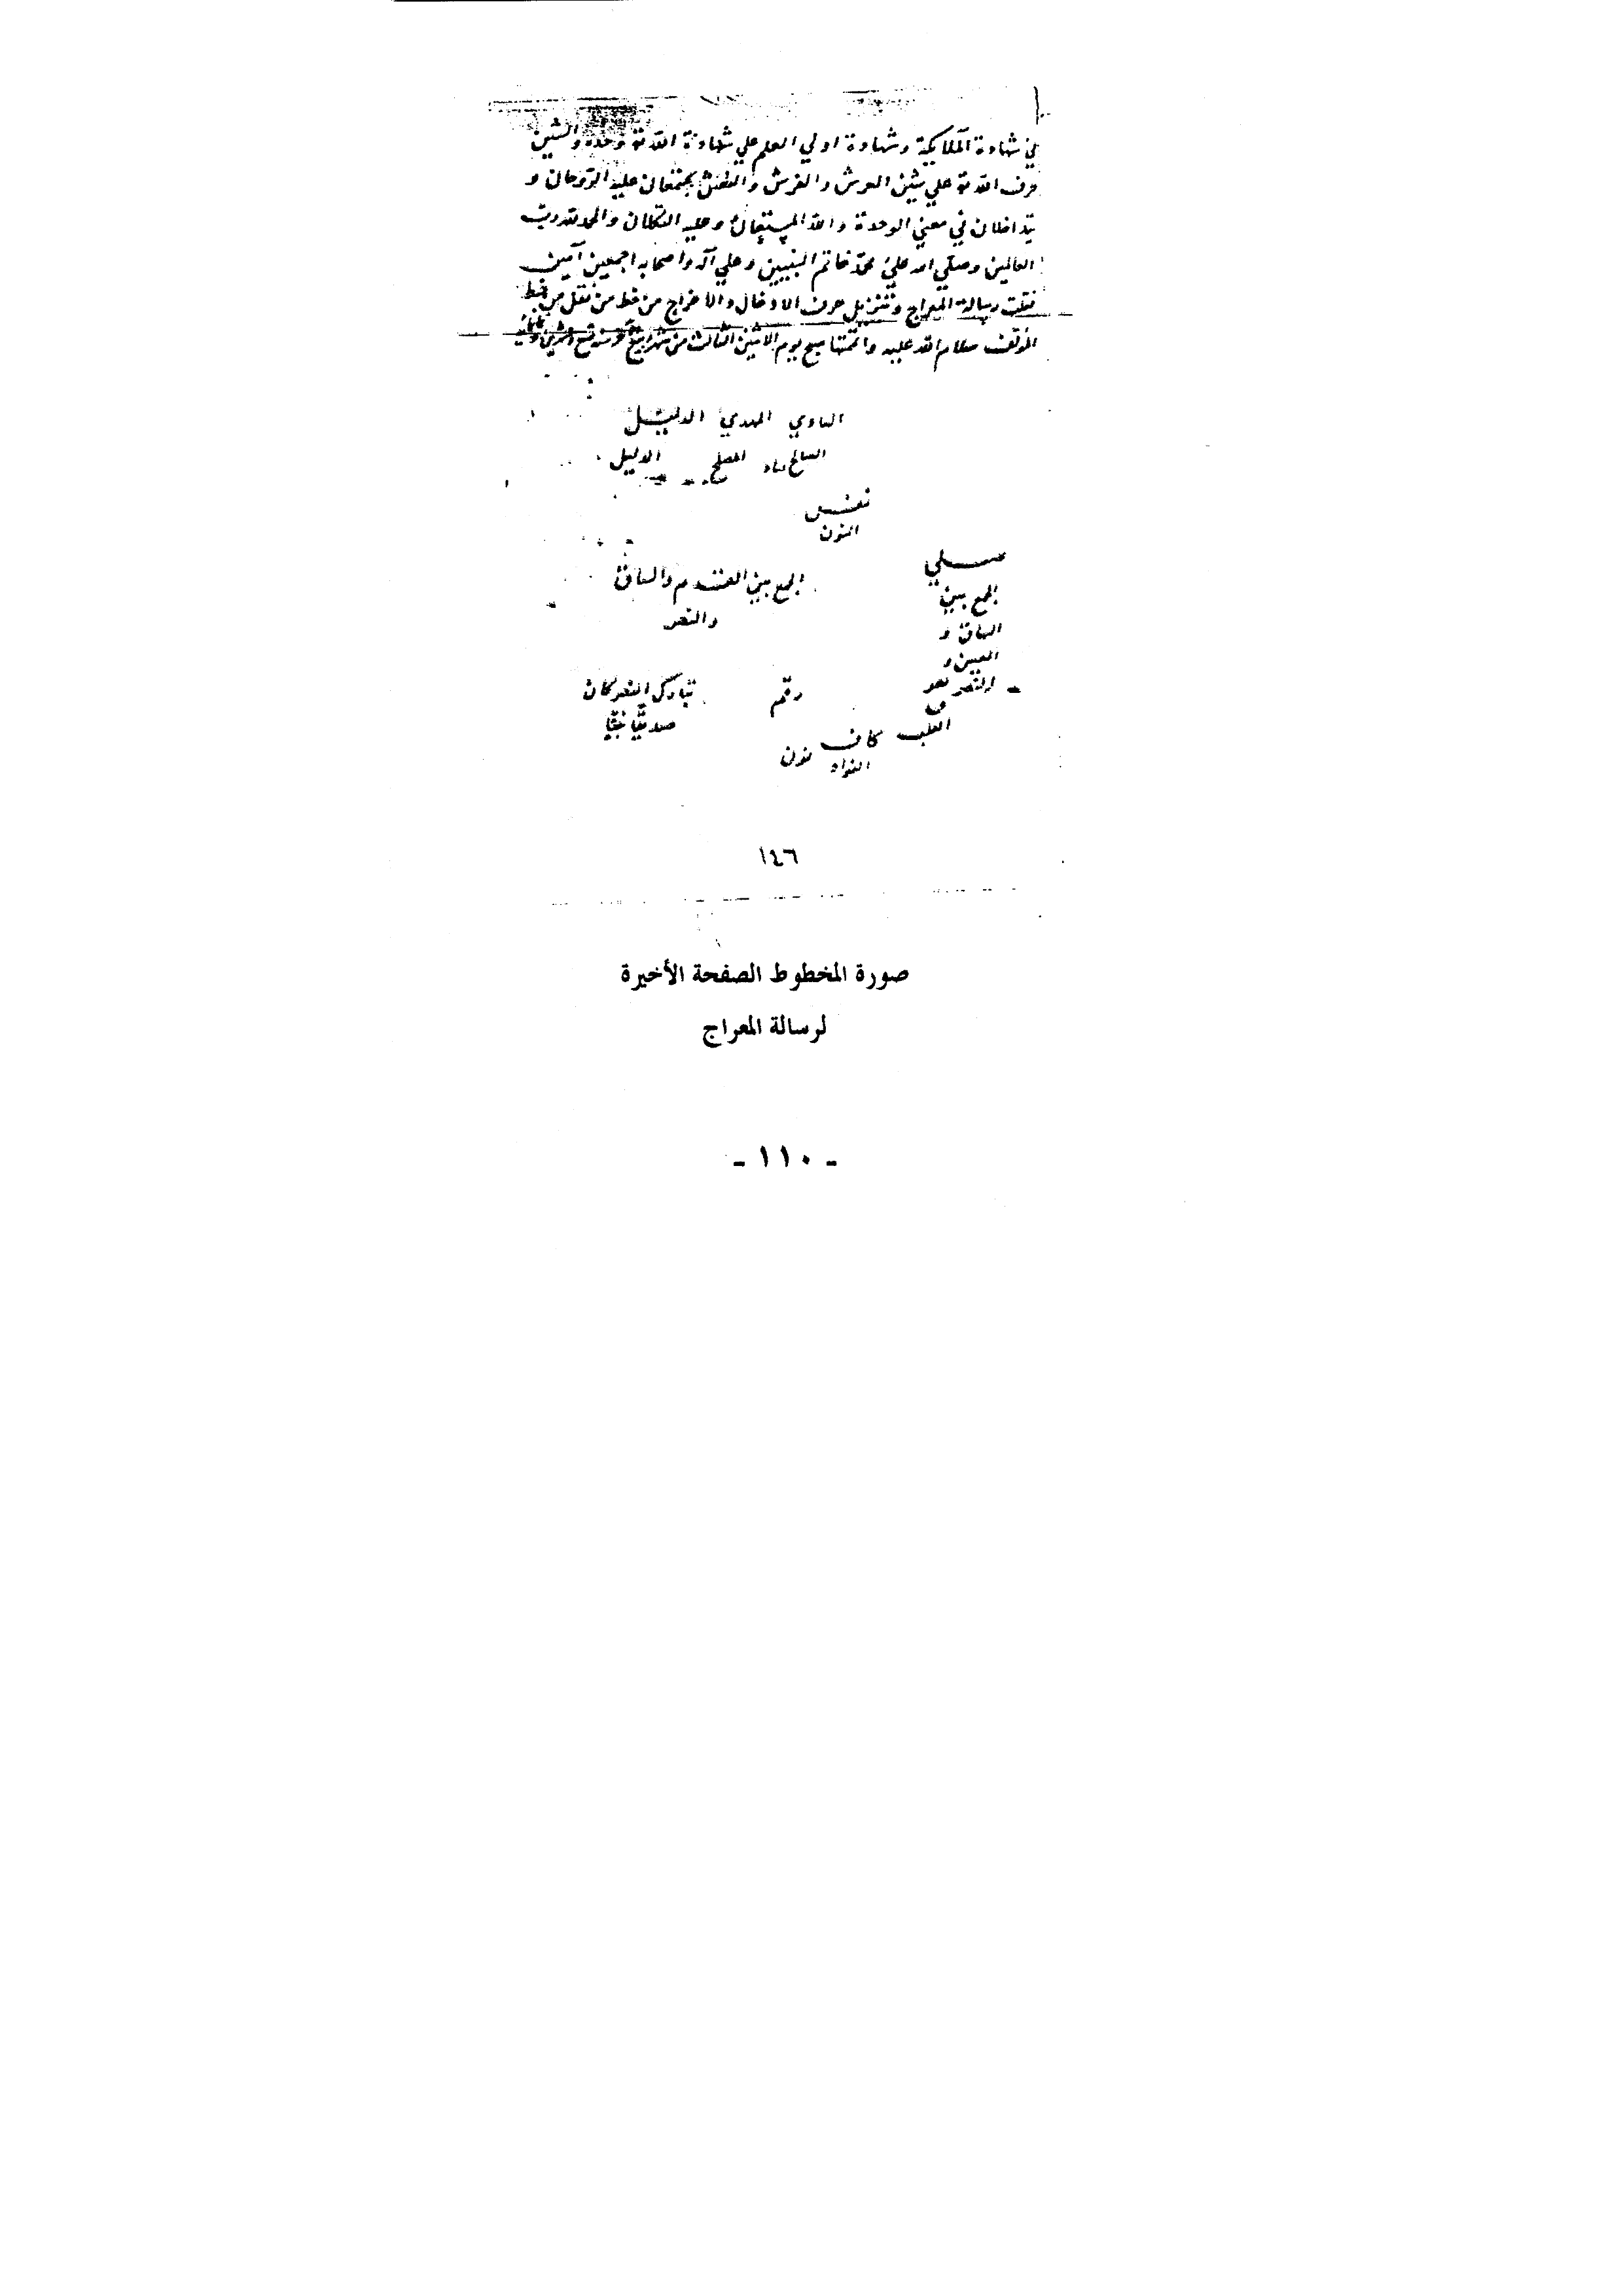 في شهادة الملايكة وشهادة اولي العلم علي شهادة الله وحده والشين
حرف الله علي شين العرش والفرش يجتمعان عليه الزوجان و
يتداخلان في معني الوحدة والله المستعان وعليه التكلان والحمد لله رب
العالمين وصلي الله علي محمد خاتم النبيين وعلي آله واصحابه اجمعين آمين
نقلت رسالة المعراج وتنزيل حرف الادخال والاخراج من خط من نقل من خط
المؤلف سلام الله عليه واتممتها يوم الاثنين الثالث من شهر ربيع
الهادي المهدي الدليل
الصالح المصلح الدليل
نفس
النون
الجمع بين
الجمع بين القدم والساق
الساق و
العين و
رقم
صديقا نبيا
القلب كاف
الفواد نون
١٤٦
صورة المخطوط الصفحة الأخيرة
لرسالة المعراج
- ١١٠ -